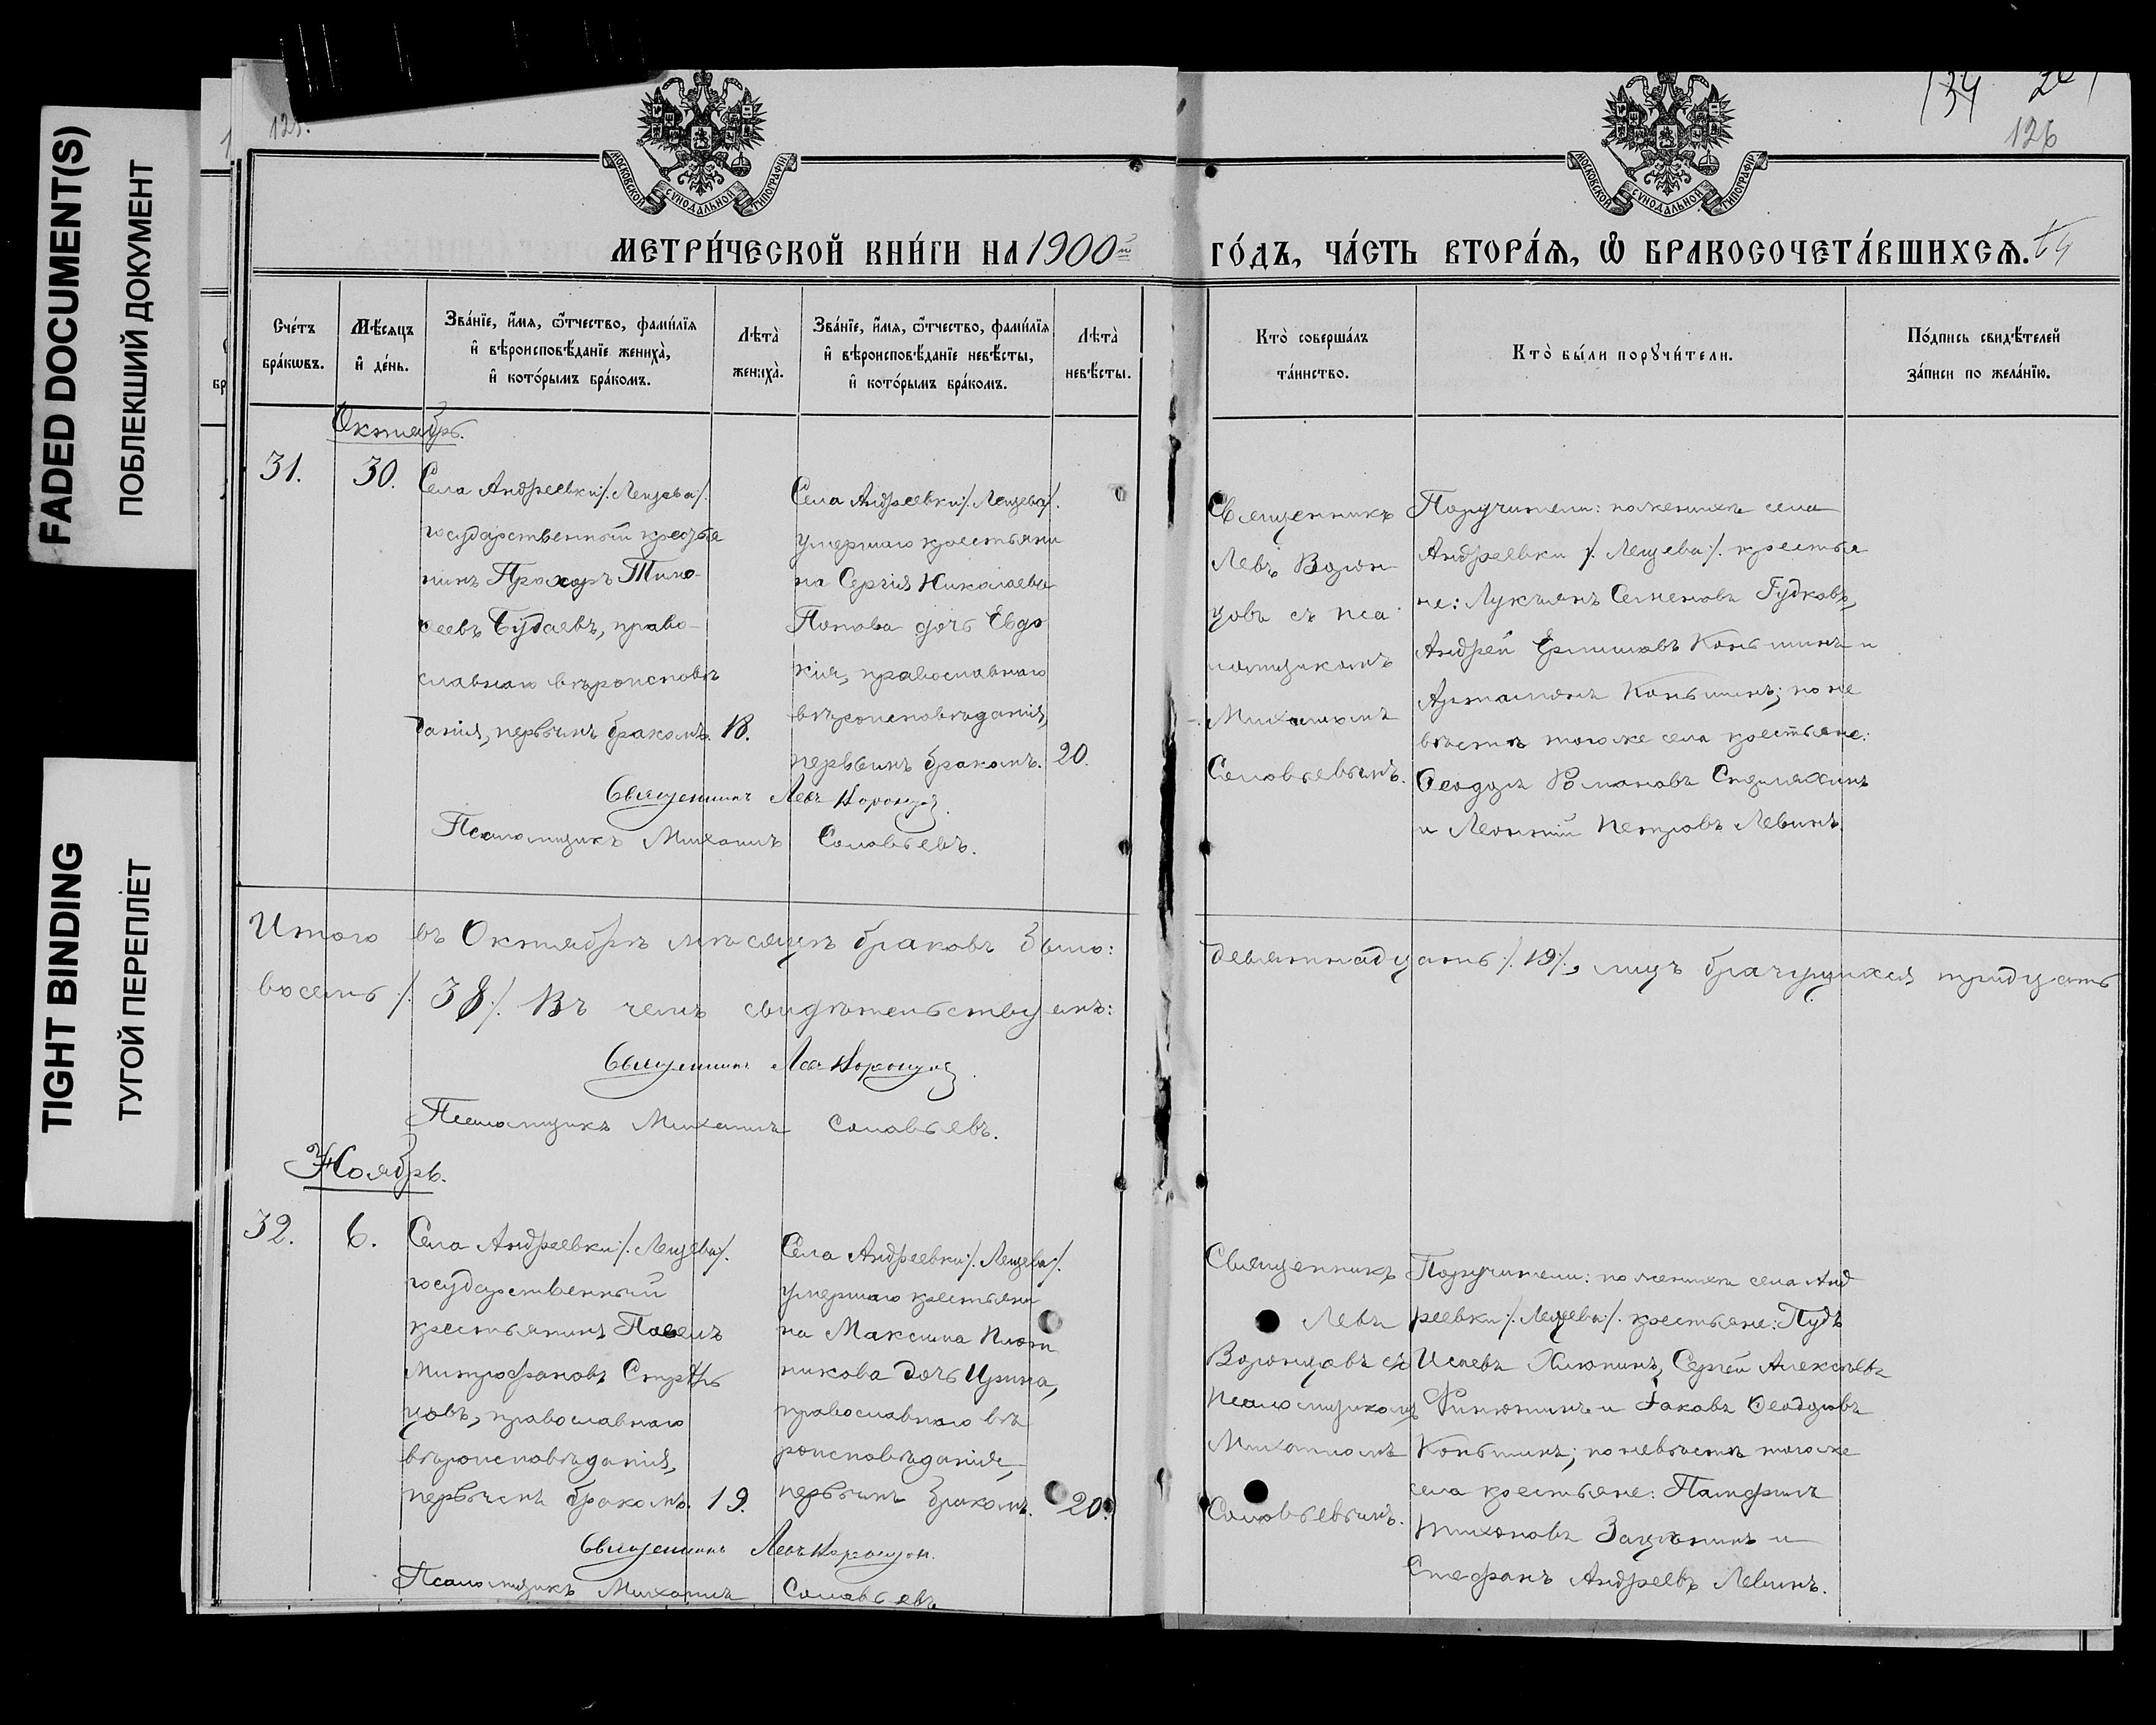 FADED DOCUMENT(S)
ПОБЛЕКШИЙ ДОКУМЕНТ
TIGHT BINDING
ТУГОЙ ПЕРЕПЛЁТ
126
МОСКОВСКОЙ СѴНОДАЛЬНОЙ ТИПОГРАФІИ
МОСКОВСКОЙ СѴНОДАЛЬНОЙ ТИПОГРАФІИ
МЕТРИ́ЧЕСКОЙ КНИ́ГИ НА 1900й
ГО́ДЪ, ЧА́СТЬ ВТОРА́Я, Ѽ БРАКОСОЧЕТА́ВШИХСЯ.
Сче́тъ бра́кωвъ.
Мѣ́сяцъ и҆ де́нь.
Зва́нїе, и҆́мя, ѻ҆́тчество, фами́лїя
и҆ вѣроисповѣ́данїе жениха̀,
и҆ кото́рымъ бра́комъ.
Лѣта̀ жениха̀.
Зва́нїе, и҆́мя, ѻ҆́тчество, фами́лїя
и҆ вѣроисповѣ́данїе невѣ́сты,
и҆ кото́рымъ бра́комъ.
Лѣта̀ невѣ́сты.
Кто̀ соверша́лъ та́инство.
Кто̀ бы́ли порꙋчи́тели.
По́дпись свидѣ́телей за́писи по жела́нїю.
Октябрь.
31.
30.
Села Андреевки /. Лещева /.
государственный крестья
нинъ Прохоръ Тимо-
ѳеевъ Будаевъ, право-
славнаго вѣроисповѣ
данія, первымъ бракомъ.
18.
Села Андреевки /. Лещева /.
умершаго крестьяни
на Сергія Николаева
Попова дочь Евдо
кія, православнаго
вѣроисповѣданія,
первымъ бракомъ.
20.
Священникъ
Левъ Воронцовъ съ псаломщикомъ
Михаиломъ
Соловьевымъ.
Поручители: по женихѣ села
Андреевки /. Лещева /. крестья
не: Лукьянъ Семеновъ Гудковъ,
Андрей Ермиловъ Коньшинъ и
Артамонъ Коньшинъ; по не
вѣстѣ того же села крестьяне:
Ѳеодулъ Романовъ
и Леонтій Петровъ Левинъ.
Священникъ Левъ Воронцов
Псаломщикъ Михаилъ Соловьевъ.
Итого въ Октябрѣ мѣсяцѣ браковъ было: девятнадцать /. 19 /., лицъ брачущихся тридцать
восемь /. 38 /. Въ чемъ свидѣтельствуемъ:
Священникъ Левъ Воронцов.
Псаломщикъ Михаилъ Соловьевъ.
Ноябрь.
32.
6.
Села Андреевки /. Лещева /.
государственный
крестьянинъ Павелъ
Митрофановъ Стрѣль
цовъ, православнаго
вѣроисповѣданія,
первымъ бракомъ.
19.
Села Андреевки /. Лещева /.
умершаго крестьяни
на Максима Плот
никова дочь Ирина,
православнаго вѣ
роисповѣданія,
первымъ бракомъ.
20.
Священникъ
Левъ
Воронцовъ съ
псаломщикомъ
Михаиломъ
Соловьевымъ.
Поручители: по женихѣ села Анд
реевки /. Лещева /. крестьяне: Пудъ
Исаевъ Сергѣй Алексѣевъ
и Іаковъ Ѳеодуловъ
Коньшинъ; по невѣстѣ того же
села крестьяне: Памфилъ
Тихоновъ и
Стефанъ Андреевъ Левинъ.
Священникъ Левъ Воронцов.
Псаломщикъ Михаилъ Соловьевъ